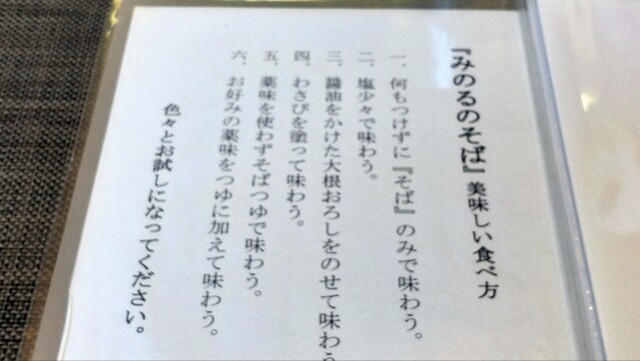 『みのるのそば』美味しい食べ方
一、何もつけずに『そば』のみで味わう。
二、塩少々で味わう。
三、醤油をかけた大根おろしをのせて味わう
四、わさびを塗って味わう。
五、薬味を使わずそばつゆで味わう。
六、お好みの薬味をつゆに加えて味わう。
色々とお試しになってください。